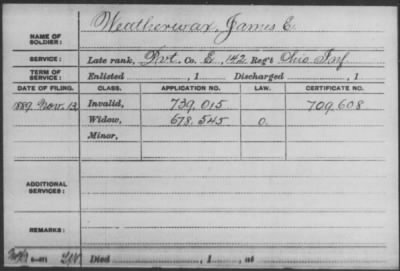 Weatherwax, James E.
NAME OF
SOLDIER:
SERVICE: Late rank, Pvt. Co. E, 142 Reg't Ohio Inf
TERM OF
SERVICE: Enlisted , 1 Discharged , 1
DATE OF FILING. CLASS. APPLICATION NO. LAW. CERTIFICATE NO.
1889. Nov. 13 Invalid, 739,015. 709,608.
Widow, 678,545 O.
Minor,
ADDITIONAL
SERVICES:
REMARKS:
Died , 1 , at